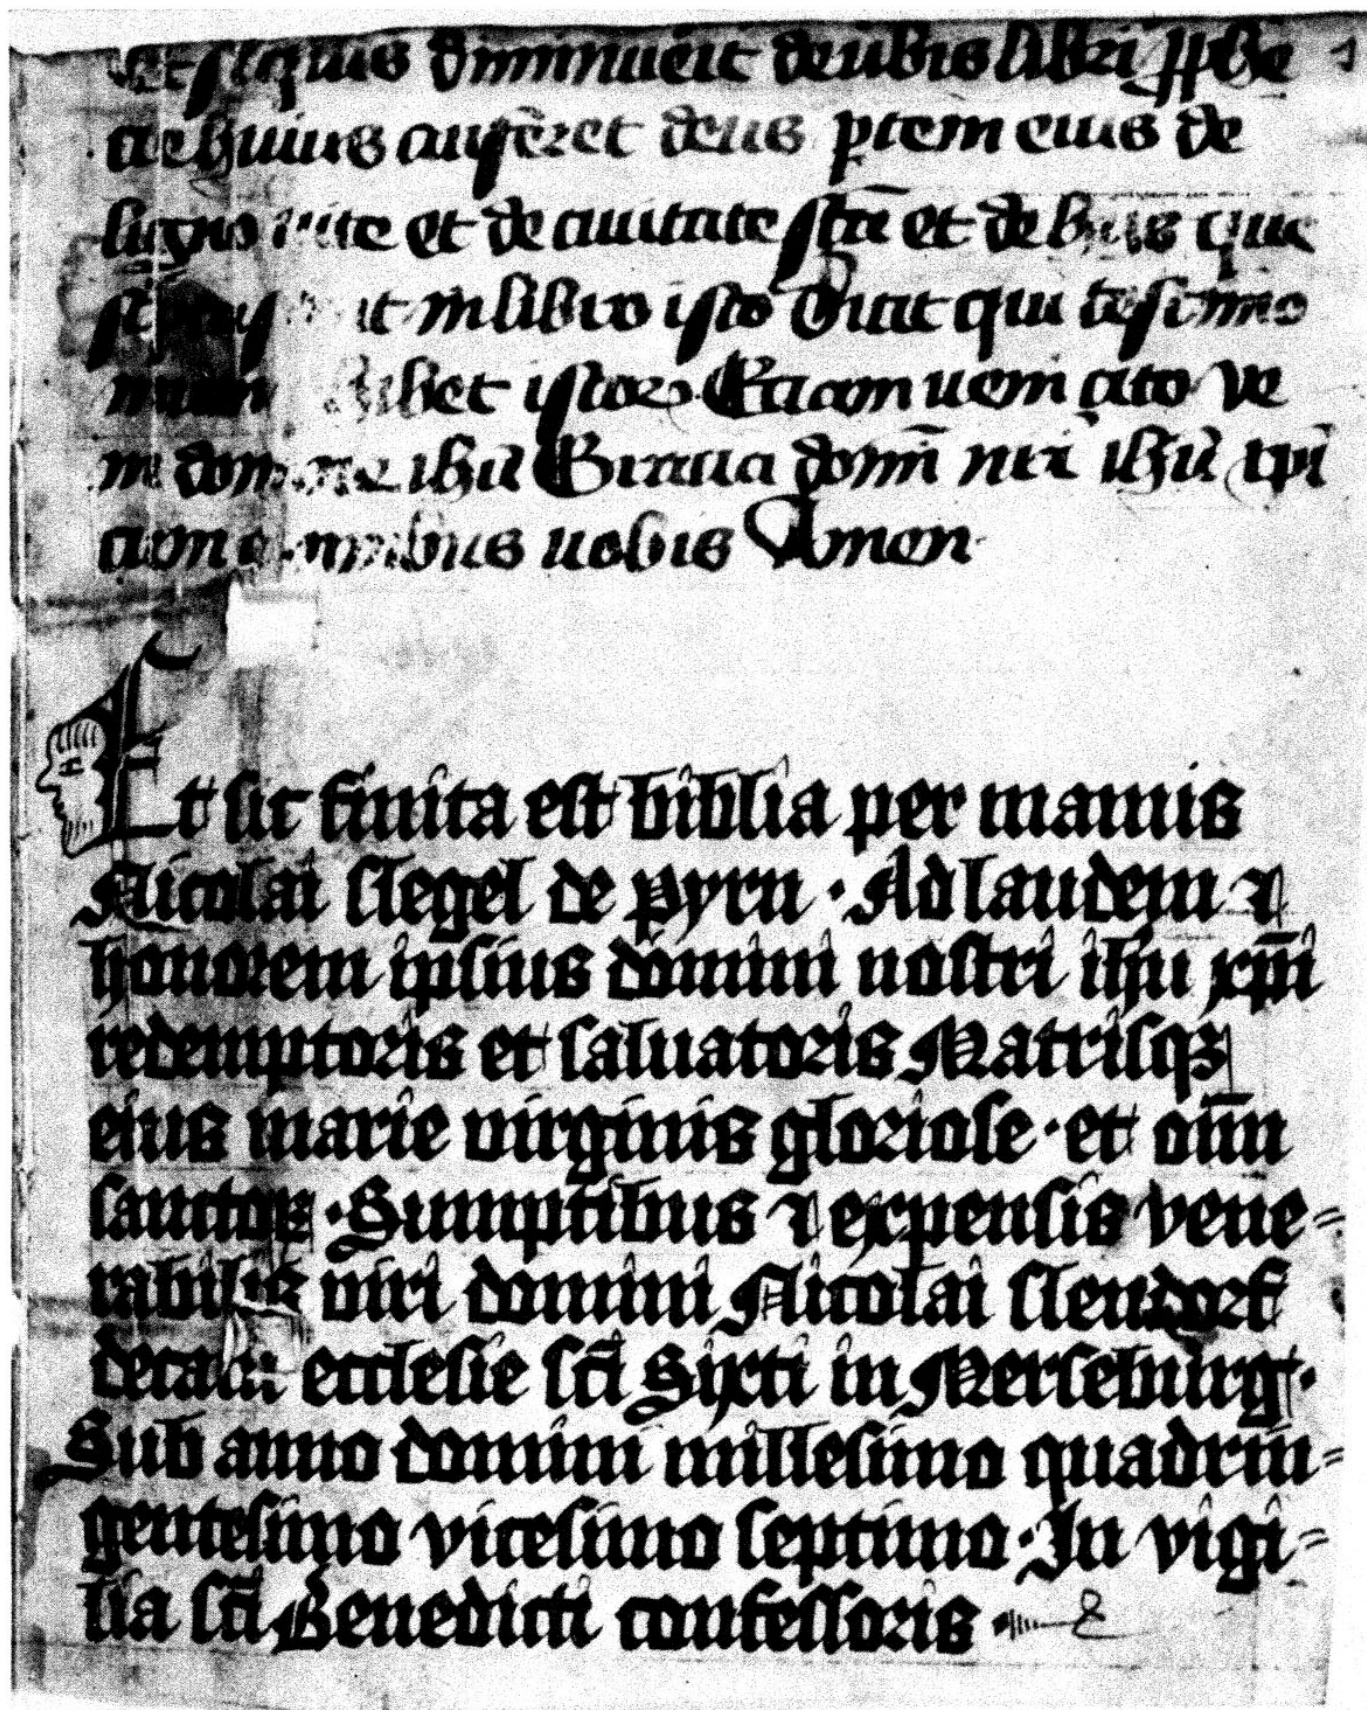 Et siquis diminuerit de ūbis libri ꝓphe
cie huius auferet deus ꝑtem eius de
ligno vite et de ciuitate sctā et de hiis que
ut in libro isto Dicit qui testimo
nium ꝑhibet istoꝝ Eciam uenio cito Ve
ni domine ihū Gracia domī nrī ihū xpī
cum omnibus uobis Amen
Et sic finita est biblia per manus
Nicolai slegel de pyrn · Ad laudem ⁊
honorem ipsius domini nostri ihu xp̄i
redemptoris et saluatoris Matrisqꝫ
eius marie virginis gloriose · et oīm
sanctoꝝ · Sumptibus ⁊ expensis vene⸗
rabilis viri domini Nicolai slendorf
decani ecclesie scī Sixti in Merseburg ·
Sub anno domini millesimo quadrin⸗
gentesimo vicesimo septimo · In vigi⸗
lia scī Benedicti confessoris